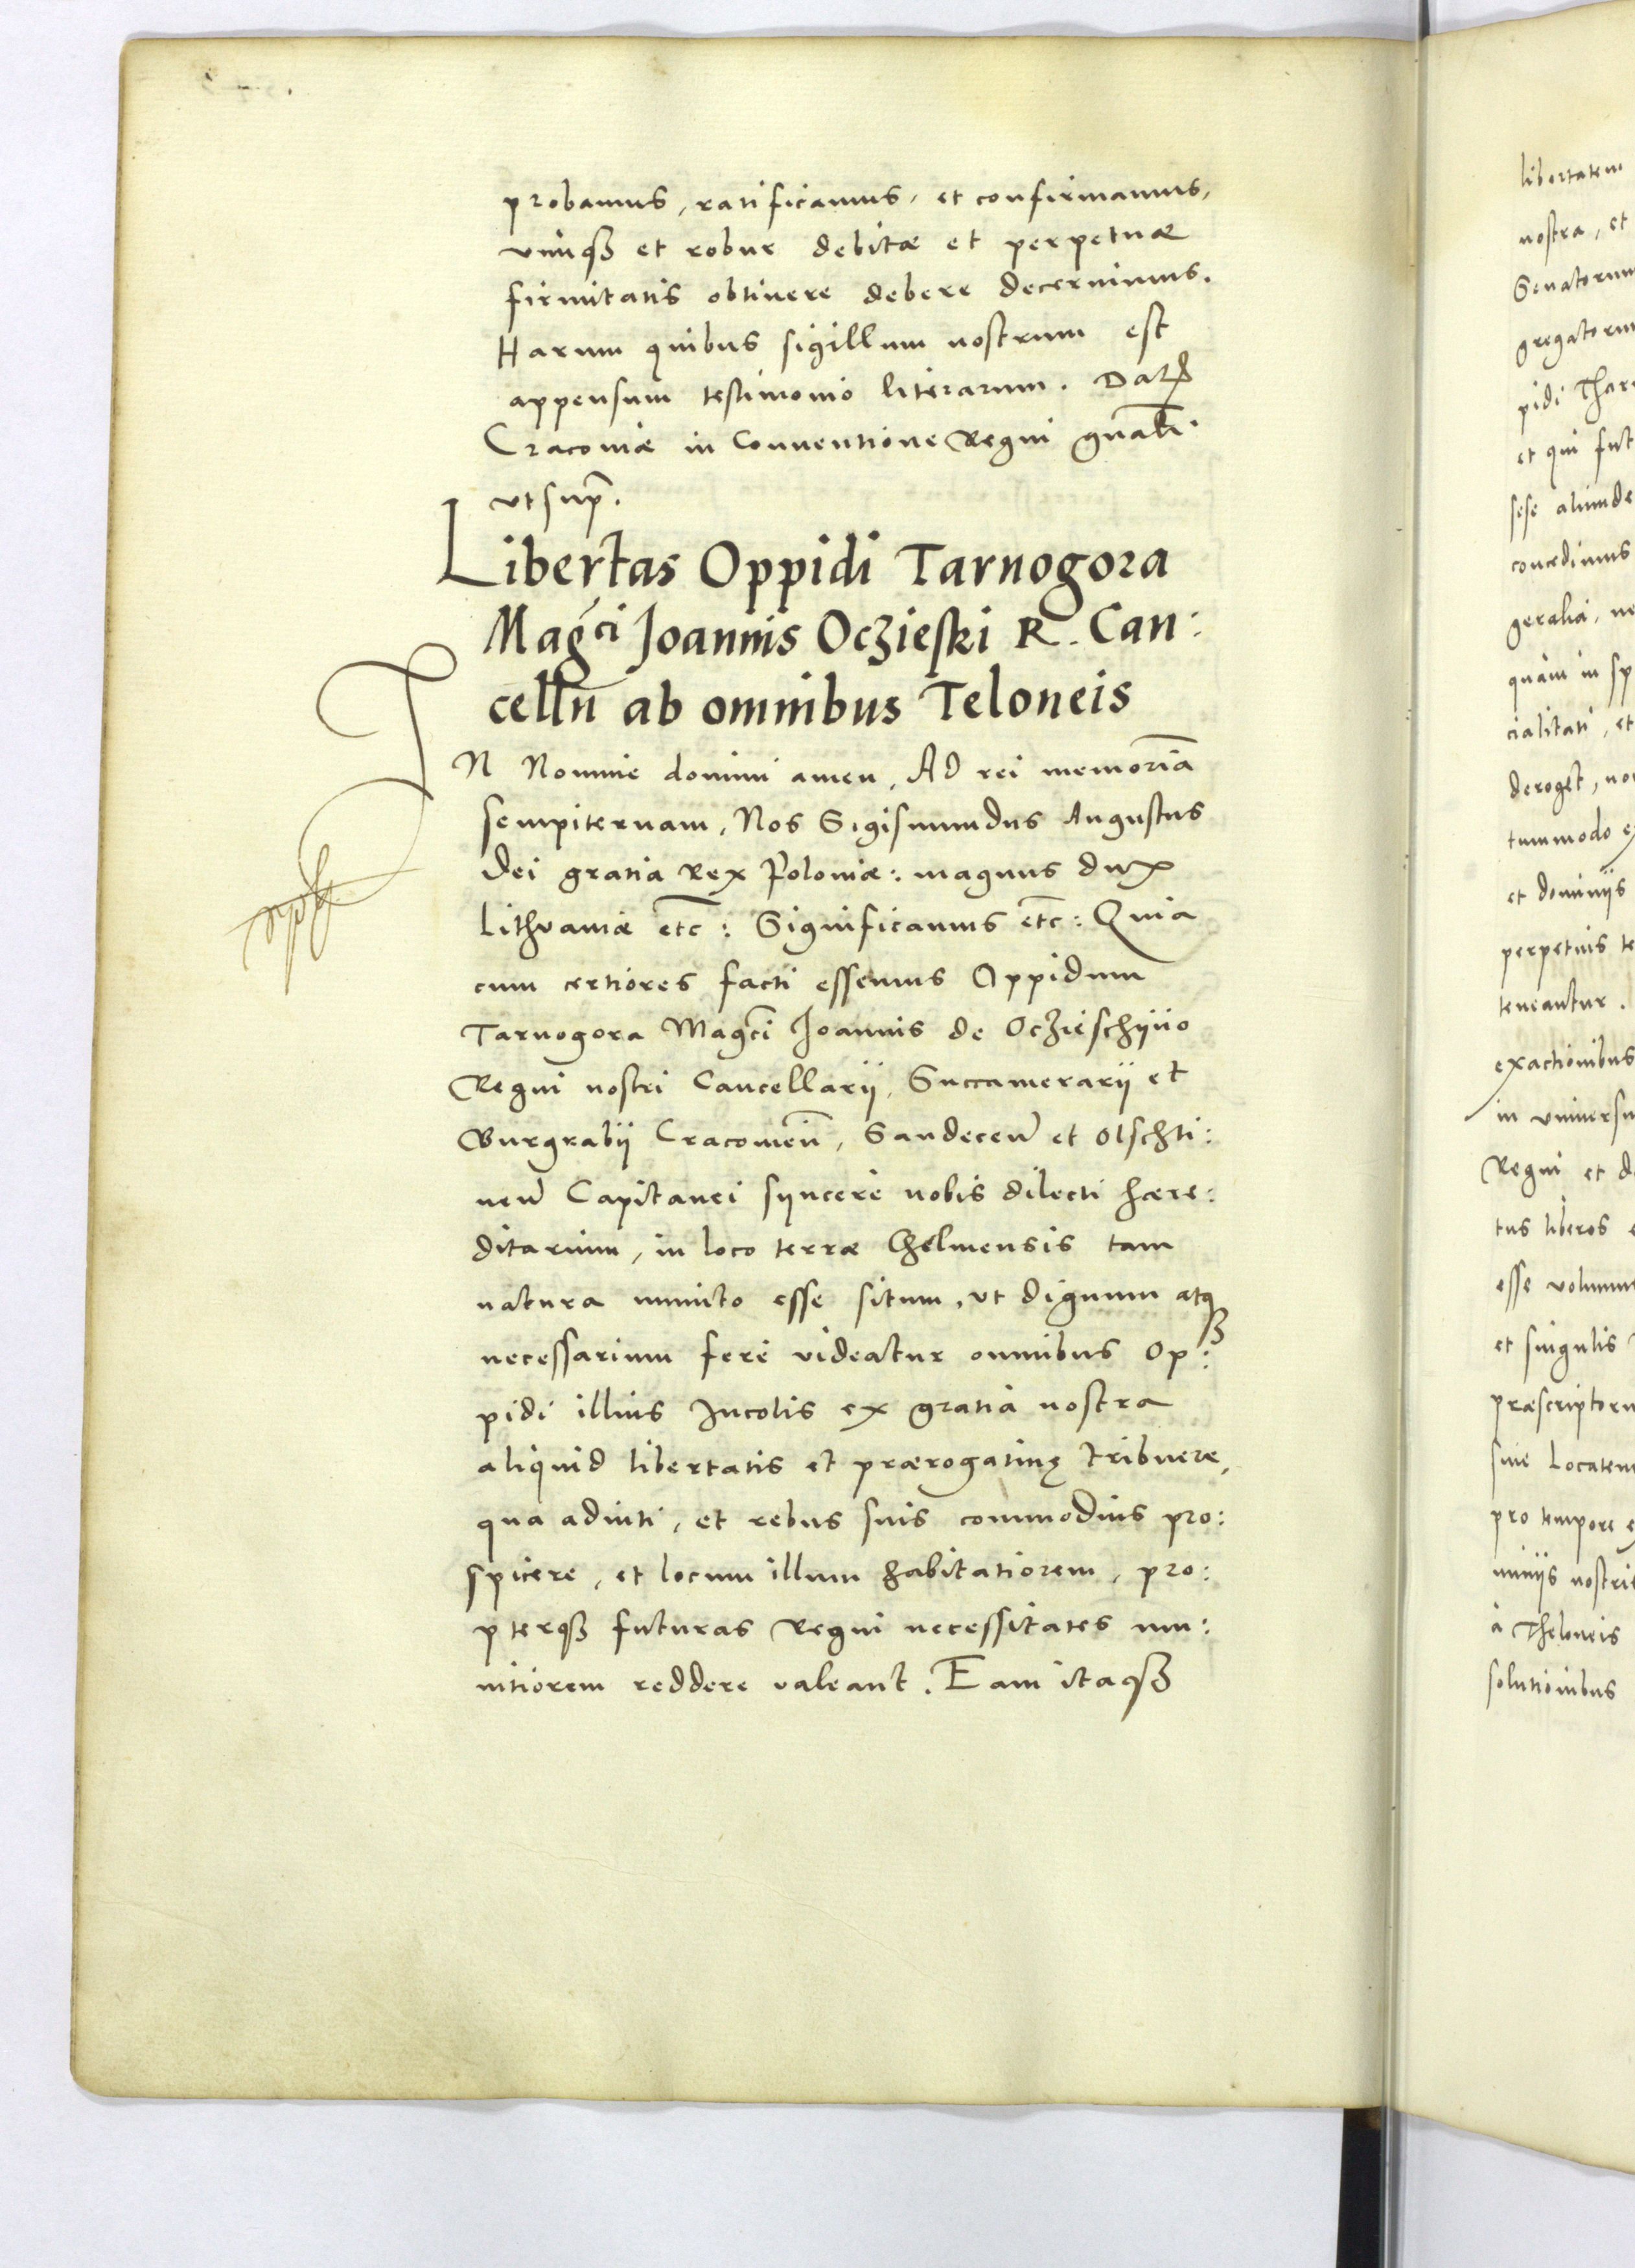 probamus, ratificamus, et confirmamus,
vimqȝ et robur debitæ et perpetuæ
firmitatis obtinere debere decernimus.
Harum quibus sigillum nostrum est
appensum testimonio literarum. Dat
Cracoviæ in Conventione Regni gnãli
ut sup̃.
Libertas Oppidi Tarnogora
Mag̃ci Joannis Oczieski R. Can:
cellñ ab omnibus Teloneis
IN Nomine domini amen, Ad rei memoriã
sempiternam, Nos Sigismundus Augustus
Dei gratia Rex Poloniæ: magnus dux
Lithvaniæ etc: Significamus etc: Quia
cum certiores facti essemus Oppidum
Tarnogora Mag̃ci Joannis de Oczieschijno
Regni nostri Cancellarij, Succamerarij et
Burgrabij Cracovieñ, Sandeceñ et Olschti:
neñ Capitanei syncere nobis dilecti hære:
ditarium, in loco terræ Chelmensis tam
natura munito esse situm, ut dignum atqȝ
necessarium ferè videatur omnibus Op:
pidi illius Incolis ex gratia nostra
aliquid libertatis et prærogatiuę tribuere,
qua adiuti, et rebus suis commodius pro:
spicere, et locum illum habitatiorem, pro:
pterqȝ futuras Regni necessitates mu:
nitiorem reddere valeant. Eam itaqȝ
libertatem
nostra, et
Senatorum
gregatorum
pidi Thar
et qui fut
sese aliunde
concedimus
geralia, ne
quam in sp
cialitati, et
deroget, non
tummodo ex
et dominijs
perpetuis te
teneantur.
exactionibus
in universu
Regni et d
tus liberos e
esse volumus
et singulis
præscriptoru
sive Locaten
pro tempore e
minijs nostris
à Theloneis
solutionibus